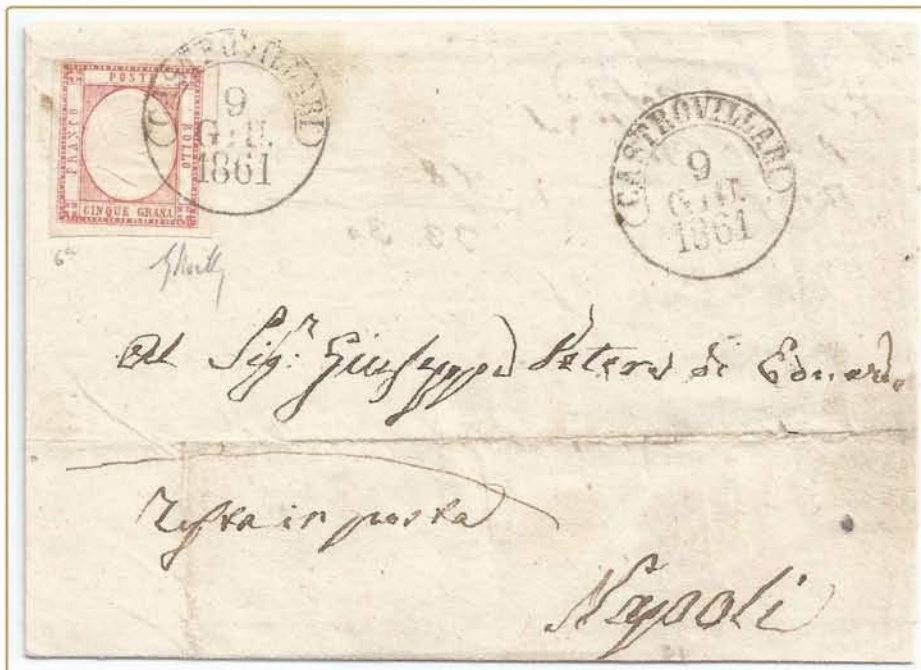 POSTE
FRANCO
BOLLO
CINQUE GRANA
CASTROVILLARI
9
GIU.
1861
CASTROVILLARI
9
GIU.
1861
Al Sig.r Giuseppe di
Resta in posta
Napoli